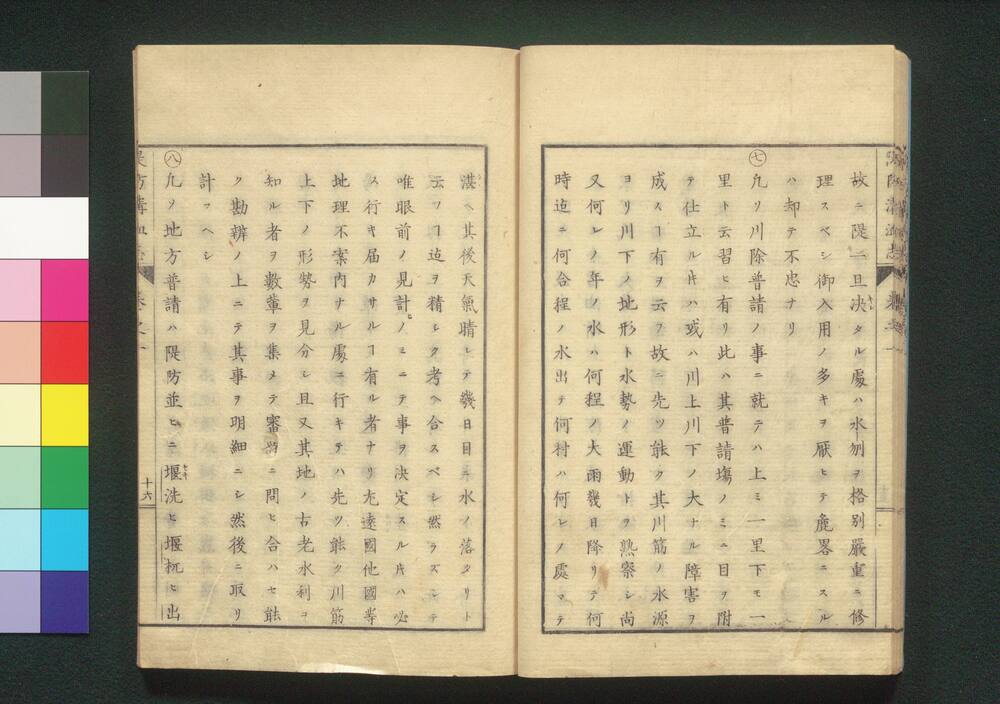 故ニ隄一旦决タル處ハ水刎ヲ格别嚴重ニ修
理スベシ御入用ノ多キヲ厭ヒテ麁畧ニスル
ハ却テ不忠ナリ
㊆凢ソ川除普請ノ事ニ就テハ上ミ一里下モ一
里ト云習ヒ有リ此ハ其普請塲ノミニ目ヲ附
テ仕立ル𪜈ハ或ハ川上川下ノ大ナル障害ヲ
成スヿ有ヲ云フ故ニ先ツ能ク其川筋ノ水源
ヨリ川下ノ地形ト水勢ノ運動トヲ熟察シ尚
又何レノ年ノ水ハ何程ノ大雨幾日降リテ何
時迠ニ何合程ノ水出テ何村ハ何レノ處マテ
湛ヘ其後天氣晴レテ幾日目ニ水ノ落タリト
云フヿ迠ヲ精シク考ヘ合スベシ然ラズシテ
唯眼前ノ見計ノミニテ事ヲ決定スル𪜈ハ必
ス行キ届カサルヿ有ル者ナリ尤遠國他國等
地理不案内ナル處ニ行キテハ先ツ能ク川筋
上下ノ形勢ヲ見分シ且又其地ノ古老水利ヲ
知ル者ヲ數輩ヲ集メテ審ニ問ヒ合ハセ能
ク勘辨ノ上ニテ其事ヲ明細ニシ然後ニ取リ
計フヘシ
㊇凢ソ地方普請ハ隄防並ヒニ堰洗ヒ堰杭ヒ出
十六